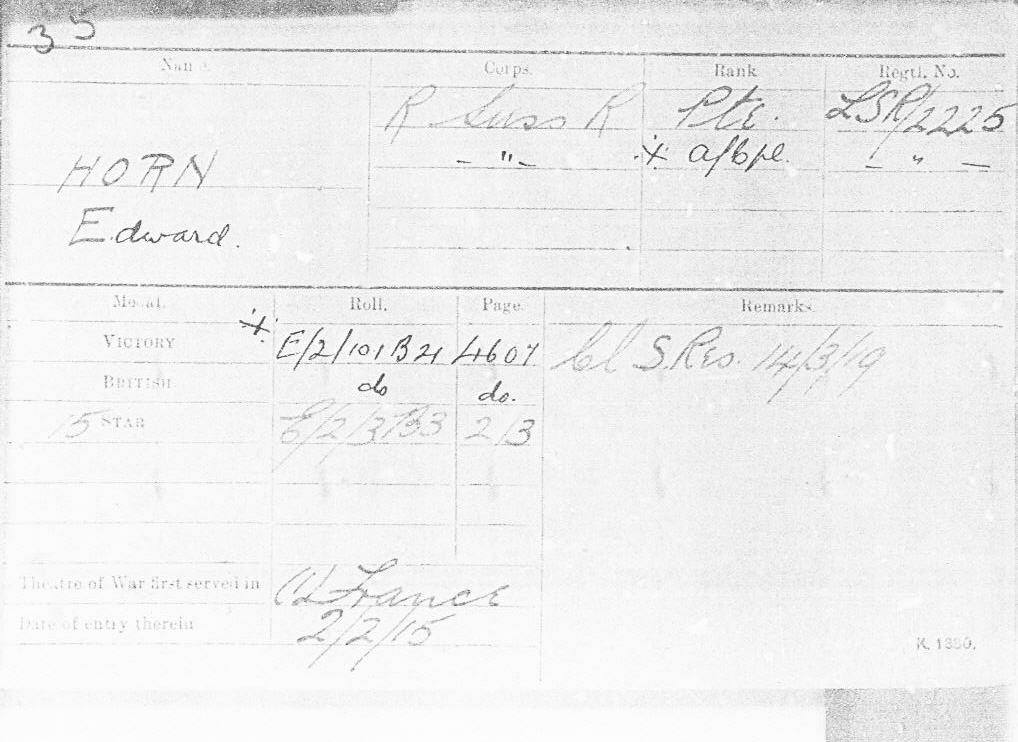 35
Name. Corps. Rank Regtl. No.
R Suss R Pte. LSR/2225
HORN -"- + a/Cpl. - " -
Edward.
Medal. Roll. Page. Remarks.
VICTORY + E/2/101 B21 4607 Cl S. Res. 14/3/19
BRITISH do do.
15 STAR E/2/3 B3 23
Theatre of War first served in (1) France
Date of entry therein 2/2/15
K. 1380.